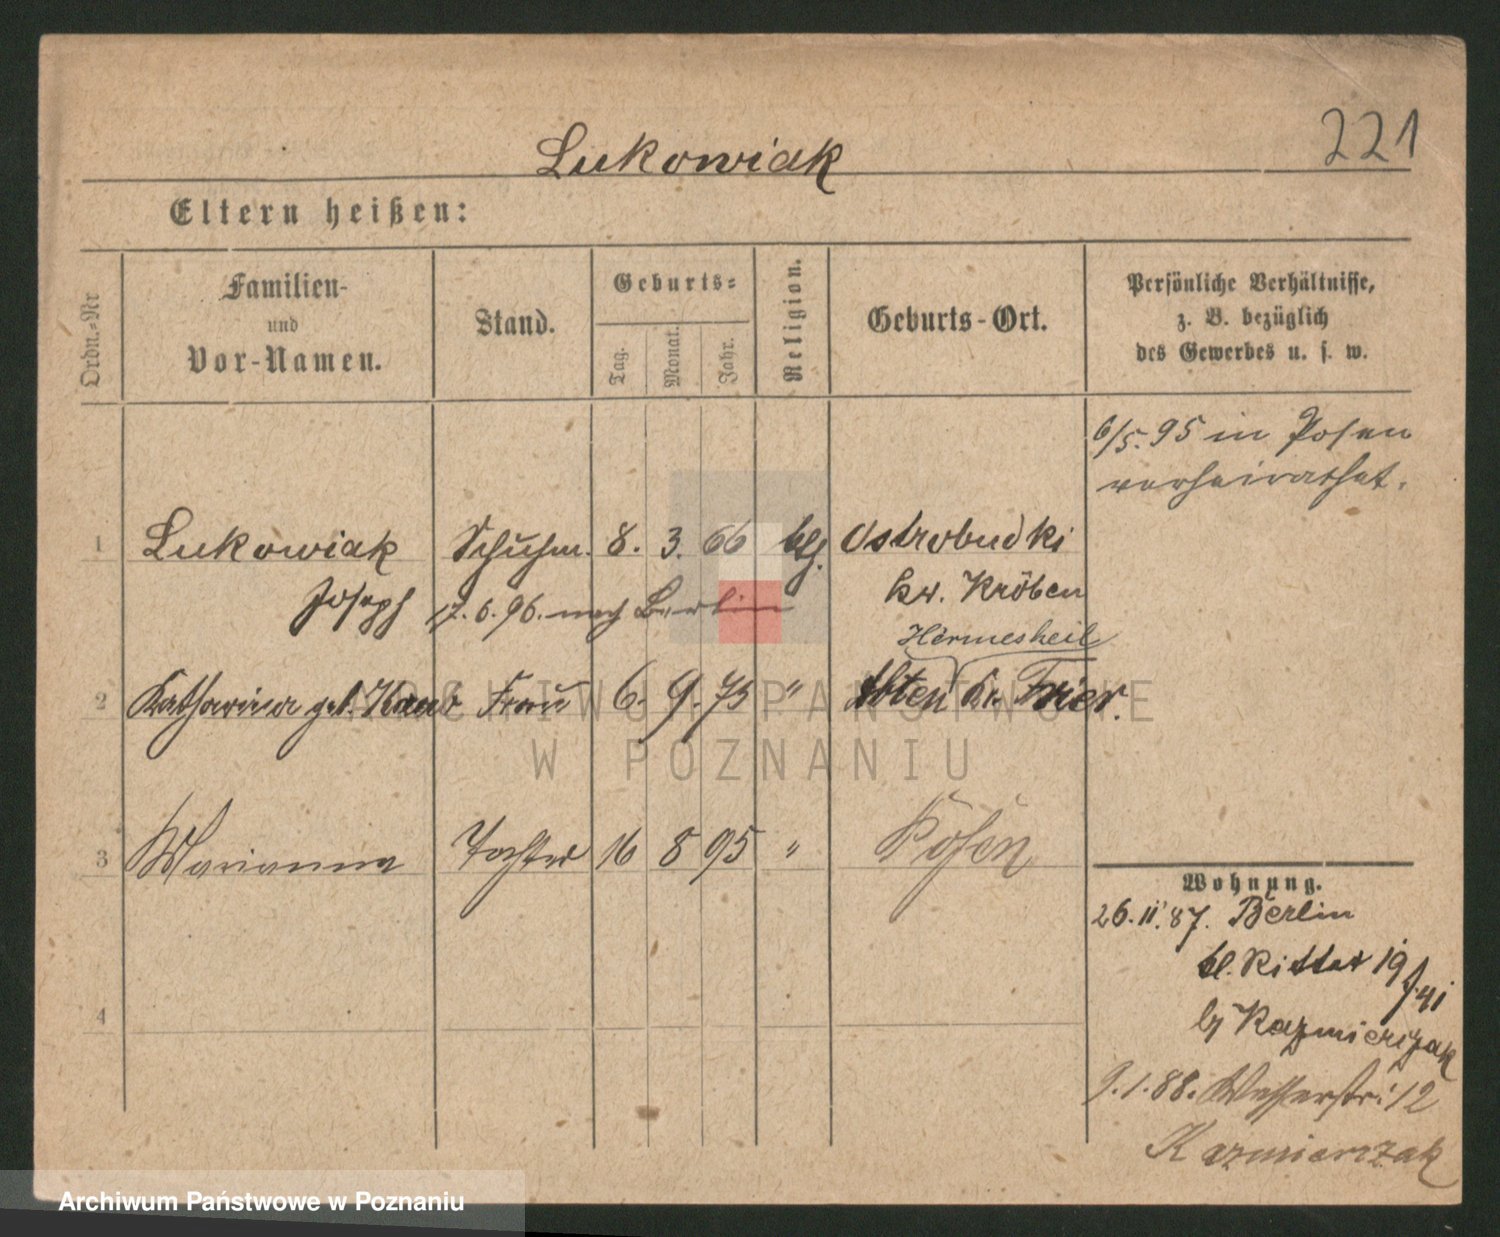 221
Lukowiak
Eltern heißen:
Ordn.-Nr
Familien-
und
Vor-Namen.
Stand.
Geburts-
Tag.
Monat.
Jahr.
Religion.
Geburts-Ort.
Persönliche Verhältnisse,
z. B. bezüglich
des Gewerbes u. s. w.
6/5. 95 in Posen
verheirathet.
1 Lukowiak Schuhm. 8. 3. 66 Ostrobudki
Joseph 17. 6. 96. nach Berlin Kr. Kröben
Hermesheil
2 Katharina geb. Frau 6. 9. 75 " Kr. Trier.
3 Marianna Tochter 16 8 95 " Posen
4
Wohnung.
26. 11. 87. Berlin
kl. Ritter 19
b/ Kazmierczak
9. 1. 88. Wasserstr. 12
Kazmierczak
ARCHIWUM PAŃSTWOWE
W POZNANIU
Archiwum Państwowe w Poznaniu